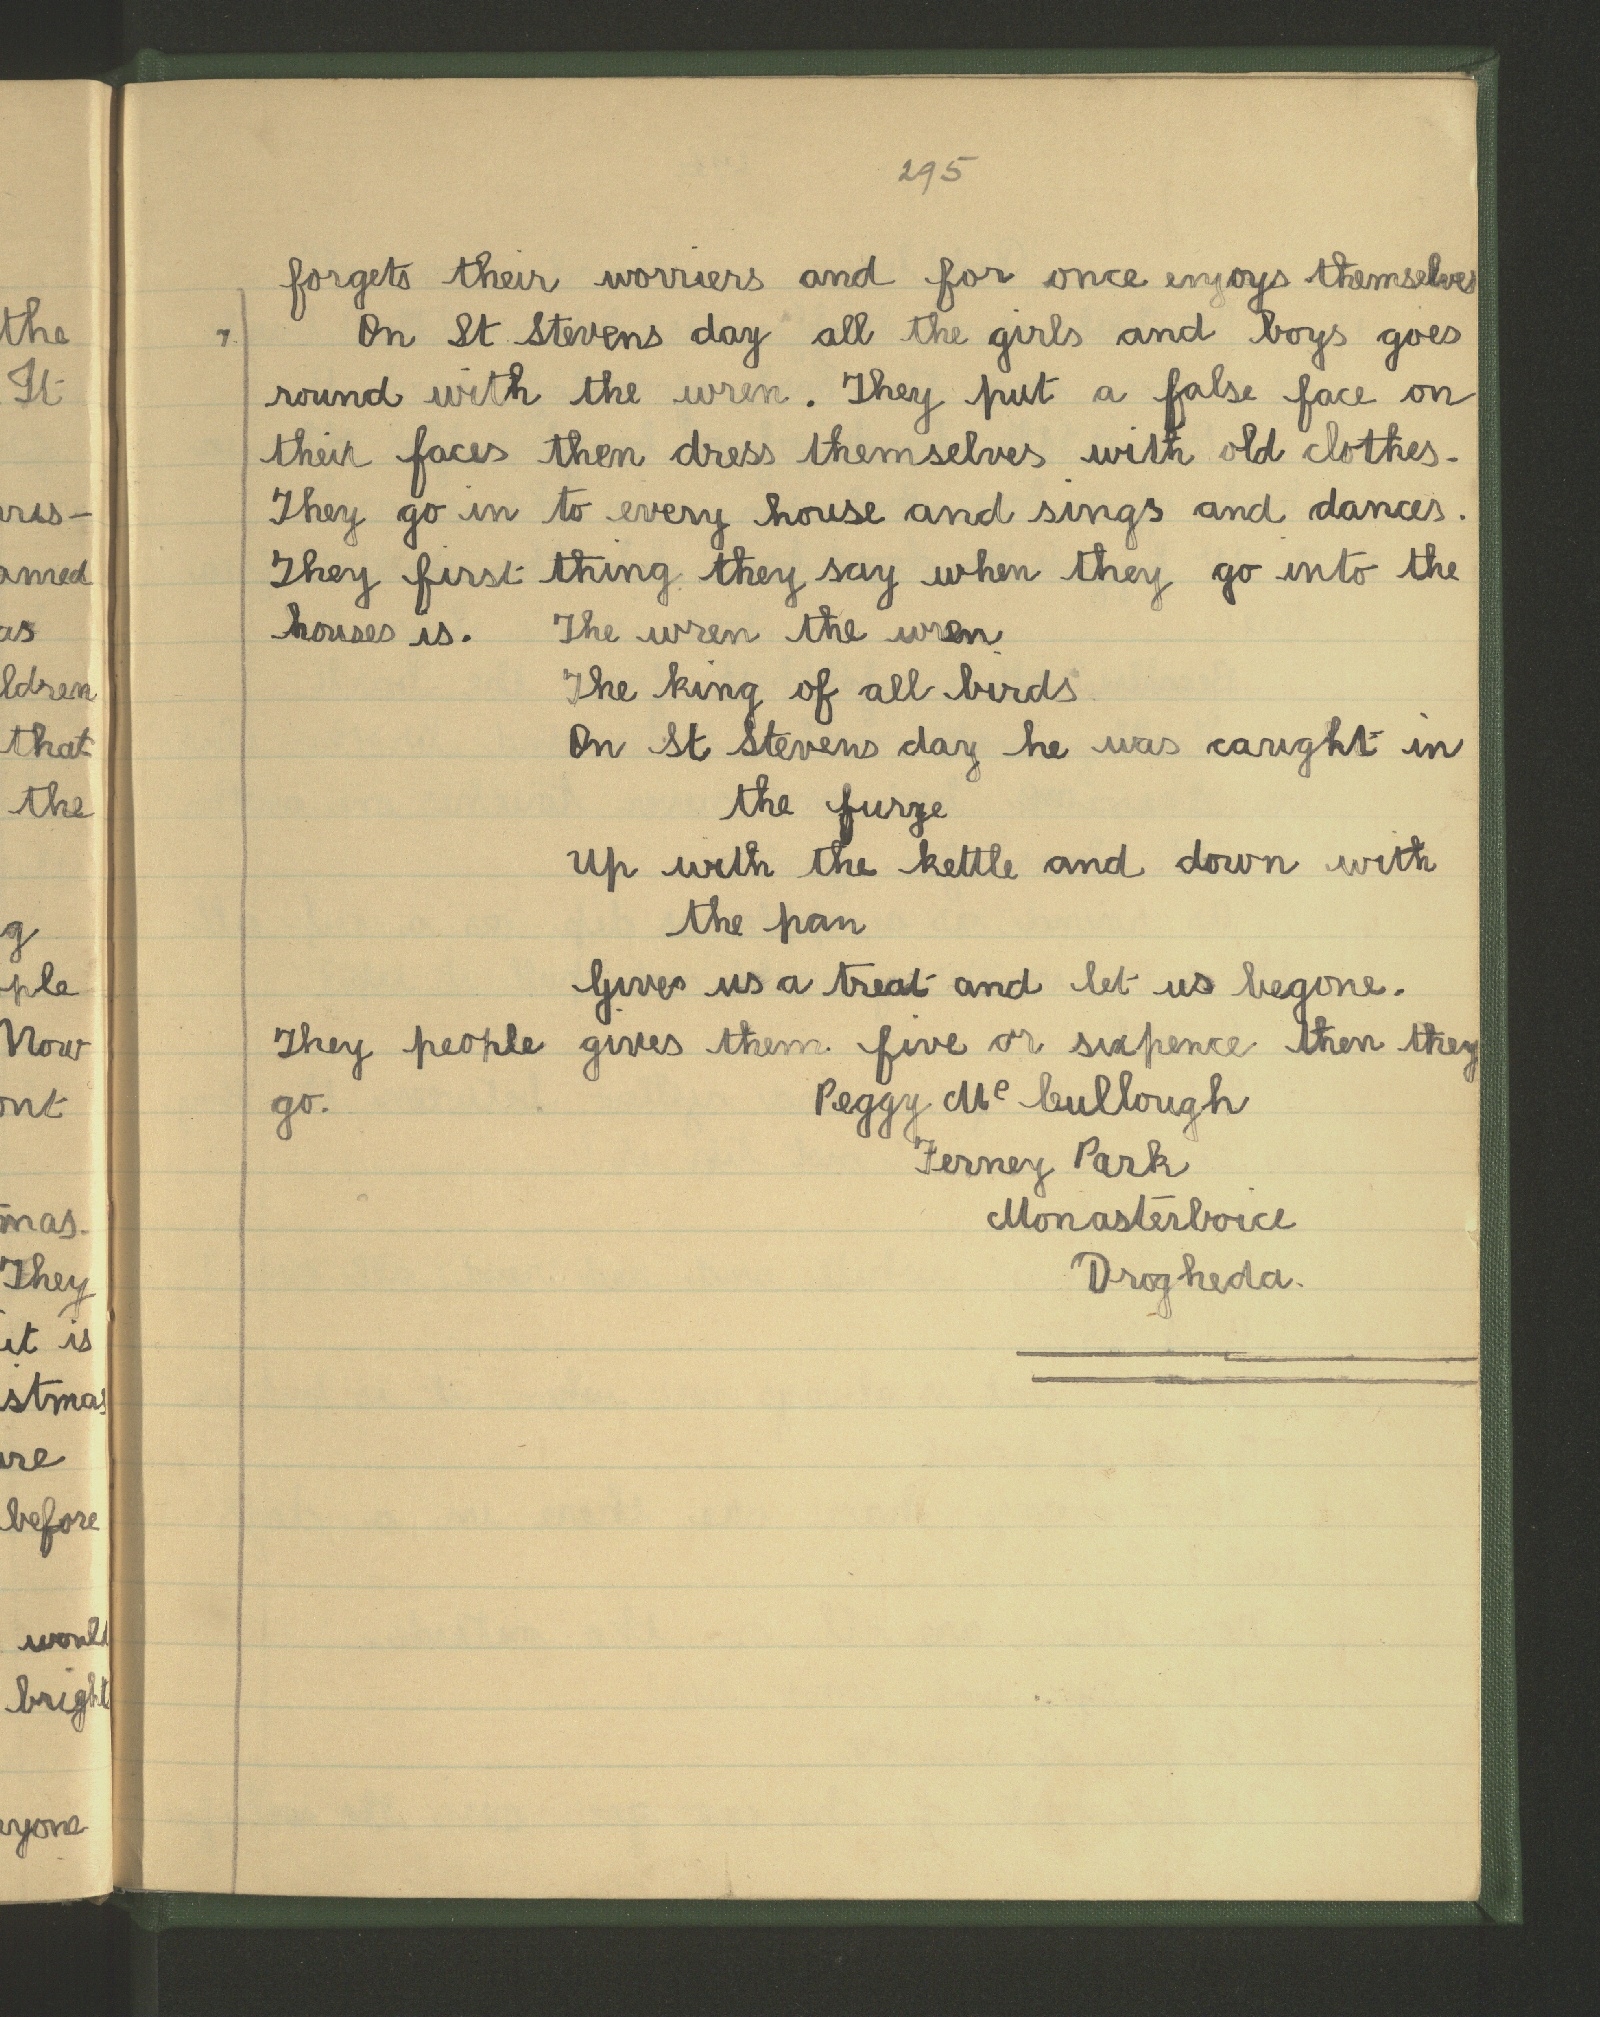 the
It
ris-
amed
as
ldren
that
the
g
ple
Now
ont
mas.
They
it is
istmas
are
before
would
bright
eryone
295
forgets their worriers and for once enjoys themselves
7. On St Stevens day all the girls and boys goes
round with the wren. They put a false face on
their faces then dress themselves with old clothes.
They go in to every house and sings and dances.
They first thing they say when they go into the
houses is. The wren the wren.
The king of all birds
On St Stevens day he was caught in
the furze
Up with the kettle and down with
the pan
Gives us a treat and let us begone.
They people gives them five or sixpence then they
go. Peggy Mc Cullough
Ferney Park
Monasterboice
Drogheda.